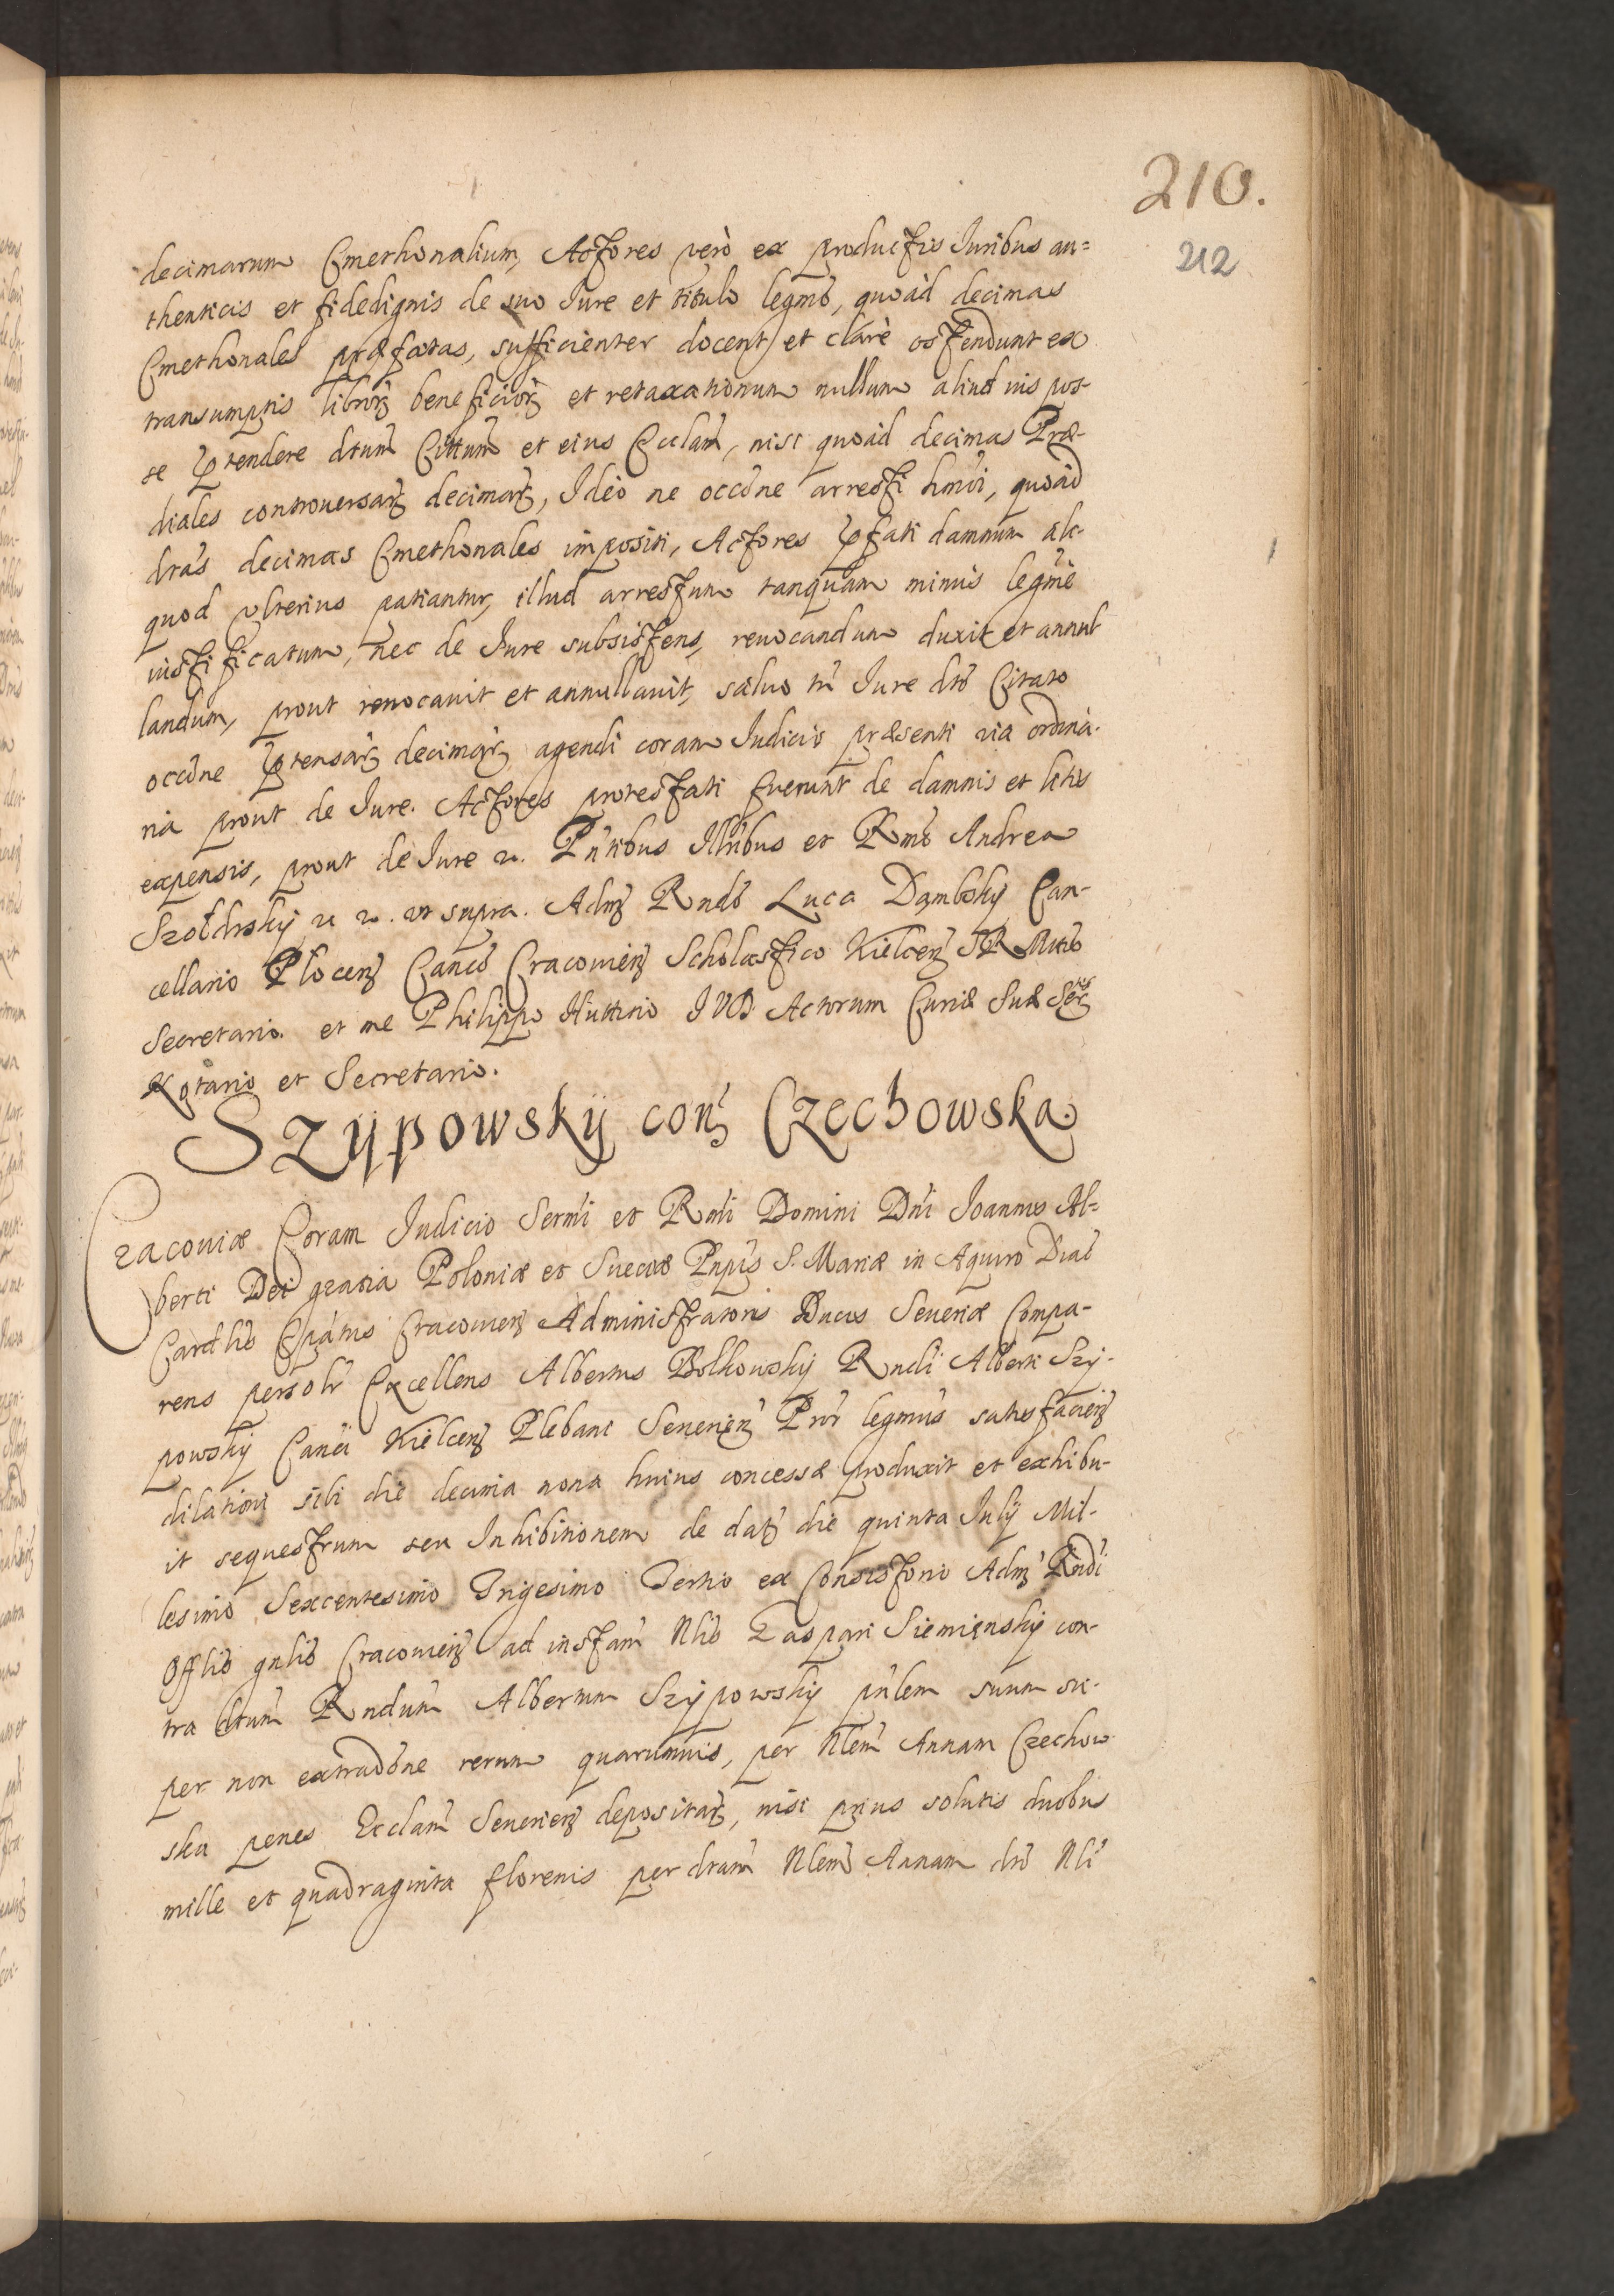 210.
212
decimarum Cmethonalium, Actores verò ex productis Iuribus au=
thenticis et fidedignis de suo Iure et titulo legmo, quoad decimas
Cmethonales præfatas, sufficienter docent et clarè ostendunt ex
transumptis libror beneficior et retaxationum nullum aliud ius pos-
se prtendere dtum Cittum et eius Ecclam, nisi quoad decimas Præ-
diales controuersar decimar, Ideò ne occone arresti hmoi, quoad
dras decimas Cmethonales impositi, Actores prfati damnum ali-
quod vlterius patiantur, illud arrestum tanquam minus legme
iustificatum, nec de Iure subsistens, reuocandum duxit et annul
landum, prout reuocauit et annullauit, saluo tn Iure dto Citato
occone prtensar decimar agendi coram Iudicio præsenti via ordina-
ria prout de Iure. Actores protestati fuerunt de damnis et litis
expensis, prout de Iure etc. Pntibus Illribus et Rmo Andrea
Szołdrsky etc etc. vt supra. Adm Rndo Luca Dąmbsky Can-
cellario Plocen Canco Cracouien Scholastico Kielcen SR Mttis
Secretario. et me Philippo Huttinio IVD Actorum Curiæ Suæ Sertis
Notario et Secretario.
Szÿpowskÿ con Czechowska
Cracouiæ Coram Iudicio Sermi et Rmi Domini Dni Ioannis Al=
berti Dei gratia Poloniæ et Sueciæ Pnpis S. Mariæ in Aquiro Diac
Cardlis Epatus Cracouien Administratoris Ducis Seueriæ Compa-
rens persolr Excellens Albertus Bolkowsky Rndi Alberti Szy-
powsky Canci Kielcen Plebani Seuerien Pror legmus satisfacien
dilationi sibi die decima nona huius concessæ produxit et exhibu-
it sequestrum seu Inhibitionem de dat die quinta Iulÿ Mil-
lesimo Sexcentesimo Trigesimo Tertio ex Consistorio Adm Rndi
Offlis gnlis Cracouien ad instam Nlis Gaspari Siemieński con-
tra dtum Rndum Albertum Szypowsky pnlem suum su-
per non extraddone rerum quarumuis, per Nlem Annam Czechow
ska penes Ecclam Seuerien depositar, nisi prius solutis duobus
mille et quadraginta florenis per dram Nlem Annam dto Nli